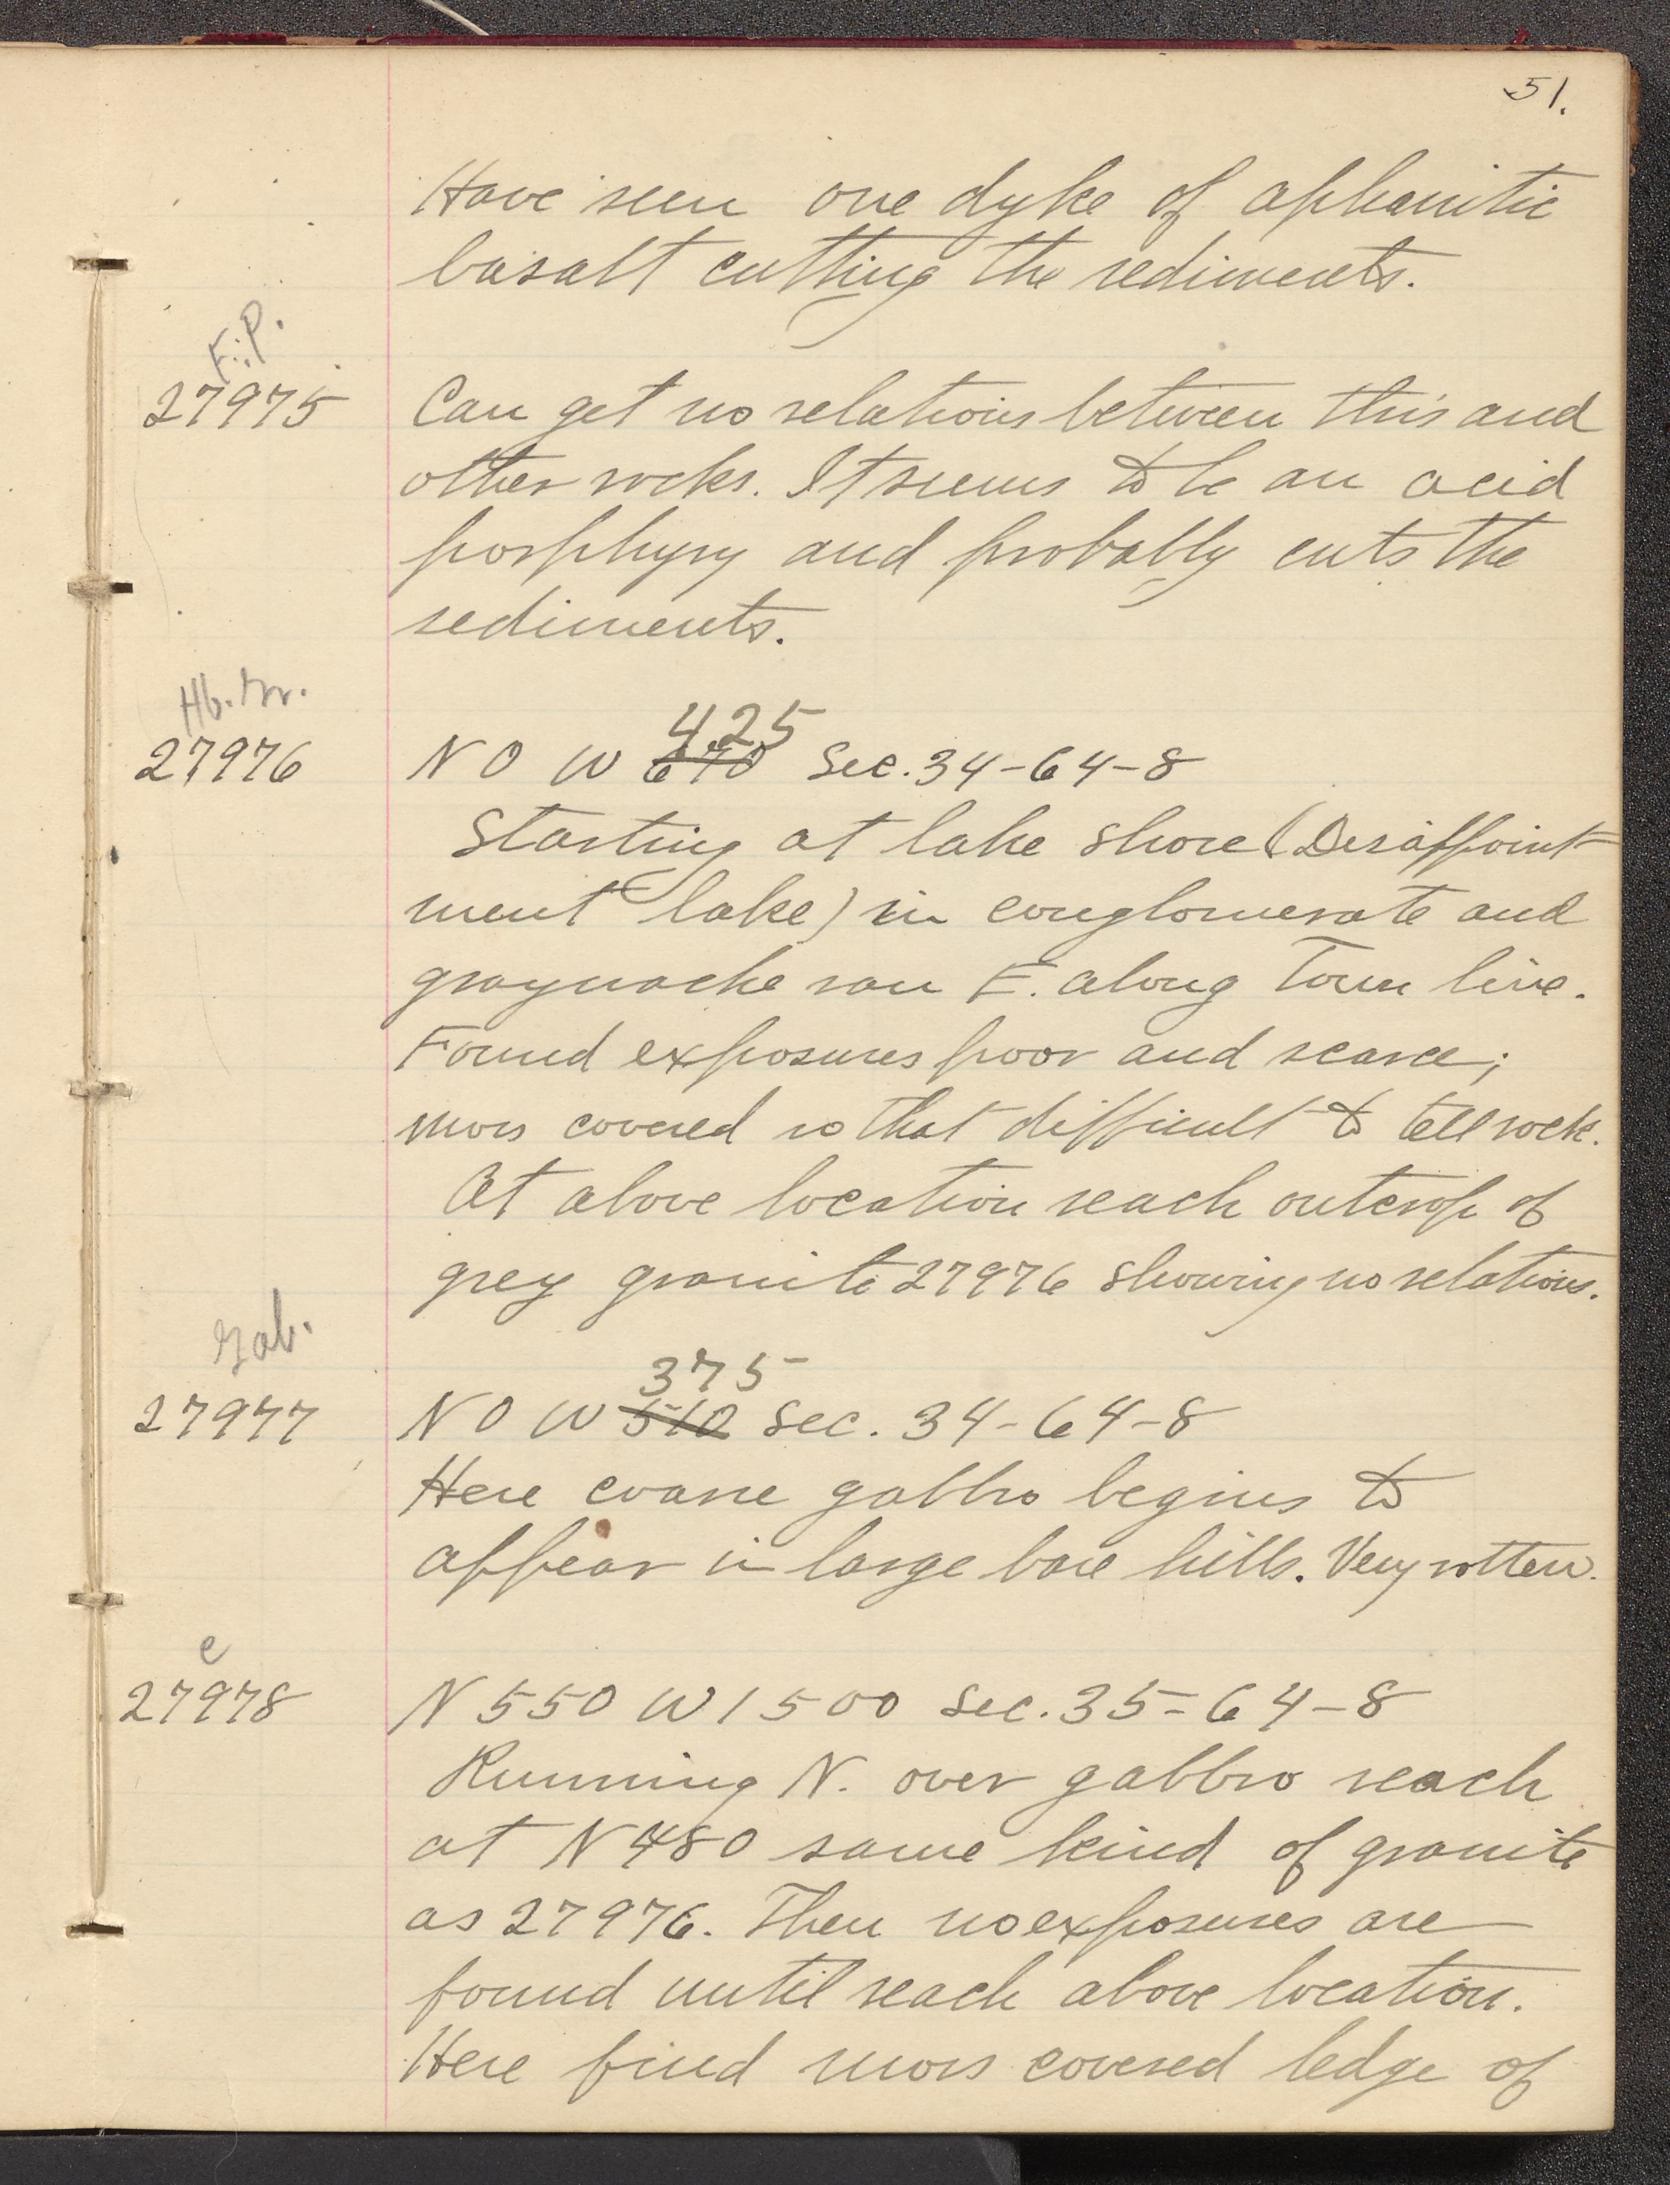 51.
Have seen one dyke of aphanitic
basalt cutting the sediments.
F.P.
27975 Can get no relations between this and
other rocks. It seems to be an acid
porphyry and probably cuts the
sediments.
Hb. Gr.
425
27976 N 0 W 670 Sec. 34-64-8
Starting at lake shore (Disappoint-
ment lake) in conglomerate and
graywacke ran E. along Town line.
Found exposures poor and scarce;
moss covered so that difficult to tell rock.
At above location reach outcrop of
grey granite 27976 showing no relations.
Gab.
375
27977 N 0 W 510 Sec. 34-64-8
Here coarse gabbro begins to
appear in large bare hills. Very rotten.
e
27978 N 550 W 1500 Sec. 35-64-8
Running N. over gabbro reach
at N 480 same kind of granite
as 27976. Then no exposures are
found until reach above location.
Here find moss covered ledge of